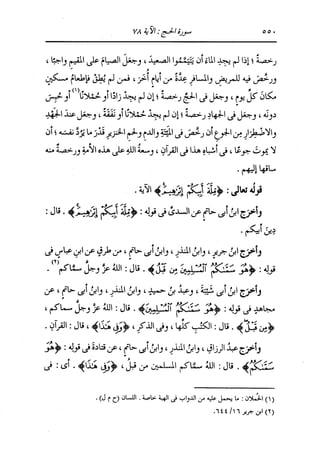 ٥٥٠ سورة الحج : الآية ٧٨
رخصةً ؛ إذا لم يجدِ الماءَ أن يَتَيَمَّموا الصعيدَ ، وجعَل الصيامَ على المقيمِ واجبًا ،
ورخَّص فيه للمريضِ والمسافرِ عدةً من أيامٍ أُخَرَ ، فمن لم يُطِقْ فإطعامُ مسكينٍ
مكانَ كلِّ يومٍ ، وجعَل فى الحجِّ رخصةً ؛ إن لم يجدْ زادًا أو حُملانًا(١) أو حُبِس
دونَه ، وجعَل فى الجهادِ رخصةً ؛ إن لم يجدْ حُملانًا أو نَفَقةً ، وجعَل عندَ الجَهْدِ
والاضطرارِ من الجوعِ أن رخَّص فى الميتةِ والدمِ ولحمِ الخنزيرِ قَدْرَ ما يَرُدُّ نفسَه ؛ أن
لا يموتَ جوعًا ، فى أشباهِ هذا فى القرآنِ ، وسعةُ اللهِ على هذه الأمةِ ورخصةٌ منه
ساقها إليهم .
قولُه تعالى : ﴿مِّلَّةَ أَبِيكُمْ إِبْرَٰهِيمَ﴾ الآية .
وأخرَج ابنُ أبى حاتمٍ عن السدىِّ فى قولِه : ﴿مِّلَّةَ أَبِيكُمْ إِبْرَٰهِيمَ﴾ . قال :
دِينَ أبيكم .
وأخرَج ابنُ جريرٍ ، وابنُ المنذرِ ، وابنُ أبى حاتمٍ ، من طرقٍ عن ابنِ عباسٍ فى
قولِه : ﴿هُوَ سَمَّىٰكُمُ ٱلْمُسْلِمِينَ مِن قَبْلُ﴾ . قال : اللهُ عزَّ وجلَّ سمَّاكم(٢) .
وأخرَج ابنُ أبى شَيْبَةَ ، وعبدُ بنُ حميدٍ ، وابنُ المنذرِ ، وابنُ أبى حاتمٍ ، عن
مجاهدٍ فى قولِه : ﴿هُوَ سَمَّىٰكُمُ ٱلْمُسْلِمِينَ﴾ . قال : اللهُ عزَّ وجلَّ سماكم ،
﴿مِن قَبْلُ﴾ . قال : الكتبِ كلِّها ، وفى الذكرِ ، ﴿وَفِى هَٰذَا﴾ ، قال : القرآنِ .
وأخرَج عبدُ الرزاقِ ، وابنُ المنذرِ ، وابنُ أبى حاتمٍ ، عن قتادةَ فى قولِه : ﴿هُوَ
سَمَّىٰكُمُ﴾ . قال : اللهُ سمَّاكم المسلمين من قبلُ ، ﴿وَفِى هَٰذَا﴾ . أى : فى
(١) الحُملان : ما يحمل عليه من الدواب فى الهبة خاصة . اللسان (ح م ل) .
(٢) ابن جرير ١٦/ ٦٤٤ .